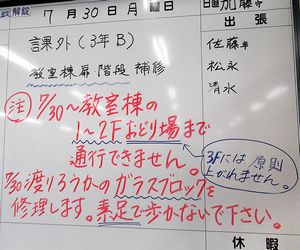 解錠
7月30日月曜日
日直 加藤
出張
課外(3年B)
佐藤
教室棟扉 階段 補修
松永
清水
注 7/30〜教室棟の
1〜2Fおどり場まで
通行できません。
3Fには原則
上がれません。
7/30 渡りろうかのガラスブロックを
修理します。素足で歩かないで下さい。
休暇